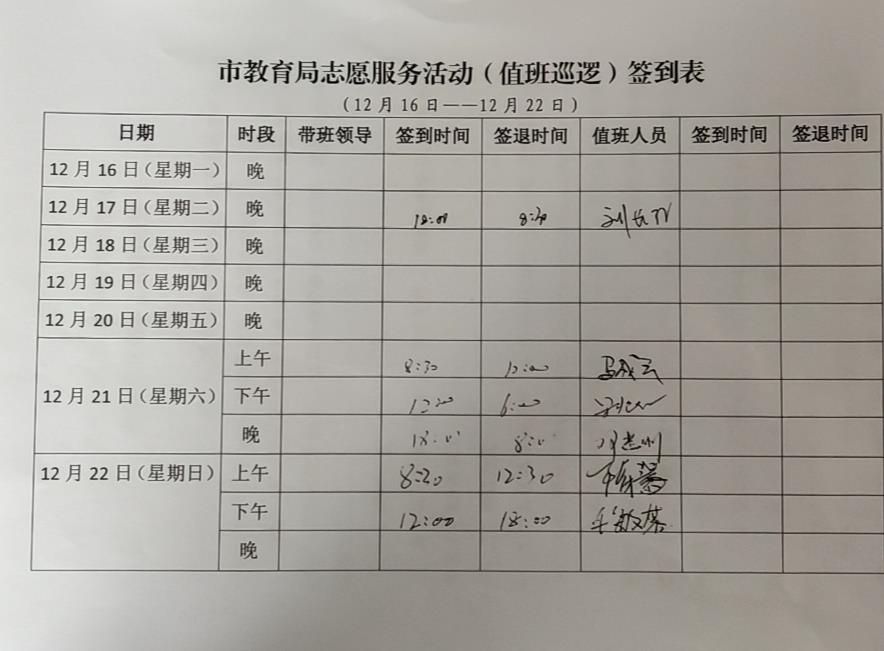 市教育局志愿服务活动（值班巡逻）签到表
（12月16日——12月22日）
日期 时段 带班领导 签到时间 签退时间 值班人员 签到时间 签退时间
12月16日（星期一） 晚
12月17日（星期二） 晚 18:00 8:30
12月18日（星期三） 晚
12月19日（星期四） 晚
12月20日（星期五） 晚
12月21日（星期六） 上午 8:30 12:00
下午 12:00 6:00
晚 18:00 8:00
12月22日（星期日） 上午 8:20 12:30
下午 12:00 18:00
晚